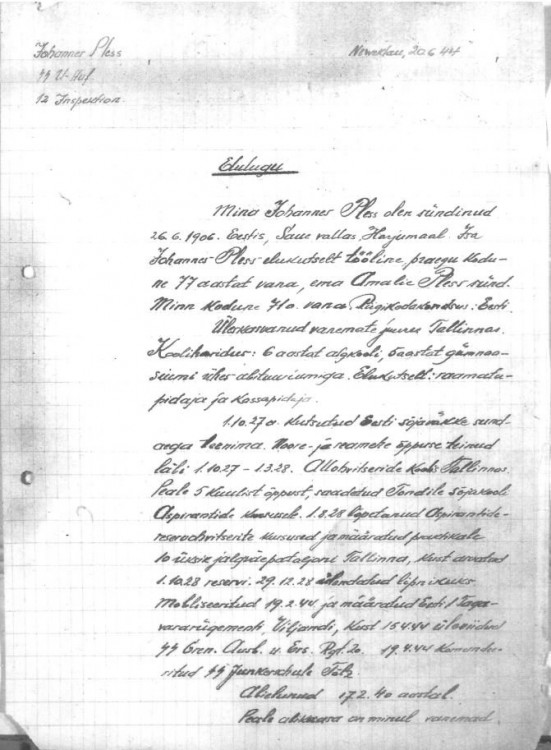 Johannes Pless
SS U-Huf.
12 Inspektion
20.6 44
Elulugu
Mina Johannes Pless olen sündinud
26.6.1906. Eestis, Saue vallas, Harjumaal. Isa
Johannes Pless elukutselt tööline praegu kodu-
ne 77 aastat vana, ema Amalie Pless sünd.
Minn kodune 71 a. vana. Riigikodakondsus: Eesti.
Üleskasvanud vanemate juures Tallinnas.
Kooliharidus: 6 aastat algkooli, 5 aastat gümnaa-
siumi ühes abituuriumiga. Elukutselt: raamatu-
pidaja ja kassapidaja.
1.10.27 a kutsutud Eesti sõjaväkke sund-
aega teenima. Noore- ja reamehe õppuse teinud
läbi 1.10.27 - 1.3.28. Allohvitseride Koolis Tallinnas.
Peale 5 kuulist õppust, saadetud Tondile Sõjakooli
Aspirantide kursusele. 1.8.28 lõpetanud Aspirantide-
reservohvitserite kursused ja määratud praktikale
10 üksik jalgväepataljoni Tallinna, kust arvatud
1.10.28 reservi. 29.12.28 ülendatud lipnikuks.
Mobiliseeritud 19.2.44 ja määratud Eesti 1 Taga-
vararügementi, Viljandi, kust 15.4.44 üleviidud
SS Gren. Ausb. u. Ers. Rgt. 20. 19.4.44 komandee-
ritud SS Junkerschule Tölz.
Abielunud 17.2.40 aastal.
Peale abikaasa on minul vanemad.